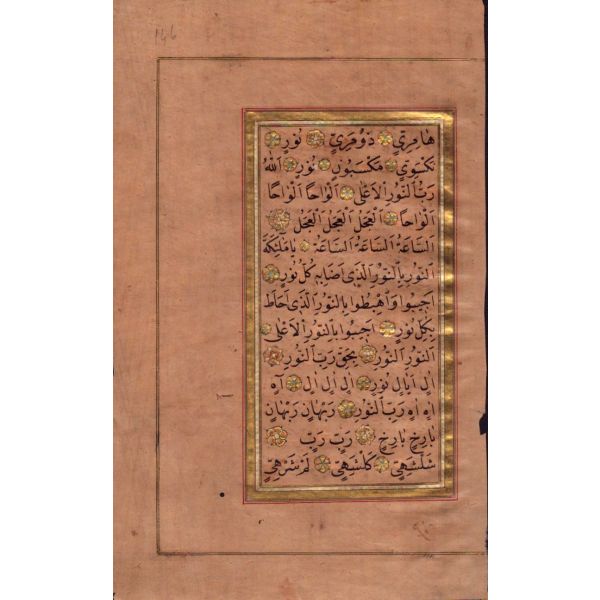 146
هَا مِرِيٍّ ذُو مِرِيٍّ نُورٍ
نُورٍ اَللّٰهُ
رَبُّ النُّورِ الْاَعْلَى اَلْوَاحًا اَلْوَاحًا
اَلْوَاحًا اَلْعَجَلَ اَلْعَجَلَ اَلْعَجَلَ
اَلسَّاعَةَ اَلسَّاعَةَ اَلسَّاعَةَ يَا مَلٰئِكَةَ
النُّورِ بِالنُّورِ الَّذِي اَضَاءَ بِهِ كُلُّ نُورٍ
اَجِيبُوا وَاهْبِطُوا بِالنُّورِ الَّذِي اَحَاطَ
بِكُلِّ نُورٍ اَجِيبُوا بِالنُّورِ الْاَعْلَى
اَلنُّورُ اَلنُّورُ بِحَقِّ رَبِّ النُّورِ
اِلْ نُورٍ اِلْ اِلْ اِلْ آهٍ
آهٍ آهٍ رَبِّ النُّورِ رَبْهَانٍ رَبْهَانٍ
بَارِخٍ بَارِخٍ رَبٍّ رَبٍّ
شَلْشَهِيٍّ كَلْشَهِيٍّ